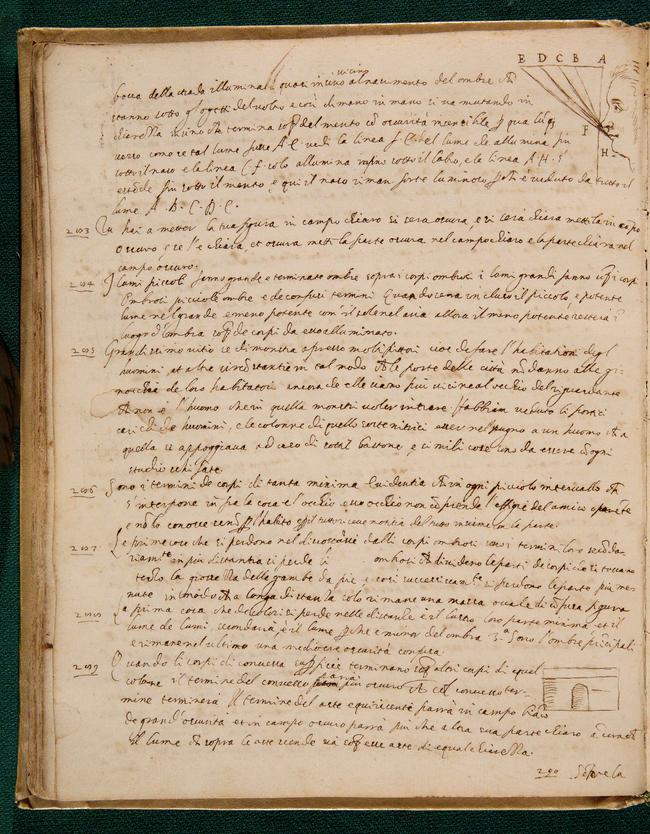 E D C B A
bocca della strada illuminata quasi insino vicino al nascimento del ombre che
stanno sotto gl'ogetti del volto e così di mano in mano si va mutando in
chiarezza insino che termina sopra del mento con oscurità insensibile per qualunque
verso come se tal lume fusse A E vedi la linea F E del lume che allumina fin
sotto il naso e la linea C F solo allumina sotto il labro, e la linea A H s'
estende fin sotto il mento, e qui il naso riman forte luminoso perché è veduto da tutto il
lume A. B. C. D. E.
F
H
Tu hai a metter la tua figura in campo chiaro se sera oscura, e se sera chiara mettila in campo
oscuro, e se l'e chiara et oscura metti la parte oscura nel campo chiaro e la parte chiara nel
campo oscuro.
I lumi piccoli fanno grande e terminate ombre sopra i corpi ombrosi i lumi grandi fanno corpi
ombrosi piccole ombre e de confusi termini Quando sera incluso il piccolo, e potente
lume nel grande e meno potente com'il sole nel aria allora il meno potente resterà
luogo d'ombra sopra de corpi da esso alluminato.
Grandissimo vitio si dimostra apresso molti pittori cioè de fare l'habitationi degl'
huomini et altre circostantie in tal modo che le porte delle città non danno alle gi-
nocchia de loro habitatori ancora che elle siano più vicine al occhio del riguardante
che non e l'huomo che in quella mostri voler intrare Habbiam veduto li portici
carichi de huomini, e le colonne di quello sostenitrici esser nel pugno a un huomo che a
quella si appoggiava ad uso di sottil bastone, e simili cose son da essere con ogni
studio schifate
Sono i termini de corpi di tanta minima evidentia che in ogni piccolo intervallo che
s'interpone infra la cosa e l'occhio esso occhio non comprende l'effigie del amico o parente
e non lo conosce se non per l'habito e per il tutto riceve notitia del tutto insieme con la parte
Le prime cose che si perdono nel discostarsi dalli corpi ombrosi sono i termini loro seconda-
riamente in più distantia si perde li ombrosi che dividono le parti de corpi che si toccano
terzo la grossezza delle gambe da pie e così successivamente si perdono le parti più mi-
nute in modo che a longa distantia solo rimane una massa ovale di confusa figura
La prima cosa che de colori si perde nelle distantie è il lustro loro parte minima et il
lume de lumi, secondaria è il lume perché e minor del ombra 3ª sono l'ombre principali
e rimane nel ultimo una mediocre oscurità confusa
Quando li corpi di convessa superficie terminano sopra altri corpi di equal
colore il termine del convesso parrà più oscuro che col convesso ter-
mine terminerà Il termine del aste equigiacente parrà in campo
de grand'oscurità et in campo oscuro parrà più che altra sua parte chiaro
il lume che sopra le aste scende sia sopra esse aste di equale chiarezza.